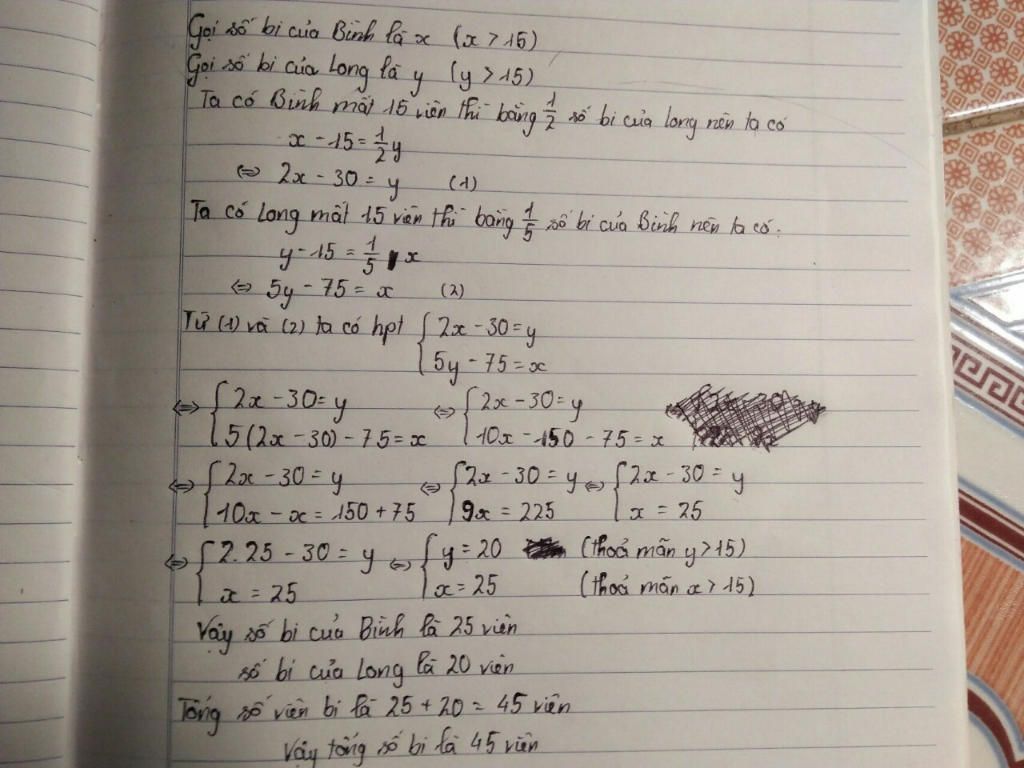 Gọi số bi của Bình là x (x > 15)
Gọi số bi của Long là y (y > 15)
Ta có Bình mất 15 viên thì bằng 1/2 số bi của Long nên ta có
x - 15 = 1/2 y
⇔ 2x - 30 = y (1)
Ta có Long mất 15 viên thì bằng 1/5 số bi của Bình nên ta có:
y - 15 = 1/5 x
⇔ 5y - 75 = x (2)
Từ (1) và (2) ta có hpt { 2x - 30 = y
5y - 75 = x
⇔ { 2x - 30 = y ⇔ { 2x - 30 = y
5(2x - 30) - 75 = x 10x - 150 - 75 = x
⇔ { 2x - 30 = y ⇔ { 2x - 30 = y ⇔ { 2x - 30 = y
10x - x = 150 + 75 9x = 225 x = 25
⇔ { 2.25 - 30 = y ⇔ { y = 20 (thoả mãn y > 15)
x = 25 x = 25 (thoả mãn x > 15)
Vậy số bi của Bình là 25 viên
số bi của Long là 20 viên
Tổng số viên bi là 25 + 20 = 45 viên
Vậy tổng số bi là 45 viên